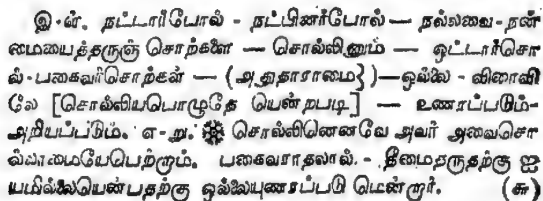 இ-ள். நட்டார்போல் - நட்பினர்போல் — நல்லவை-நன்
மையைத்தருஞ் சொற்களை — சொல்லினும் — ஒட்டார்சொ
ல்-பகைவர்சொற்கள் — (அதுதாராமை})—ஒல்லை - விரைவி
லே [சொல்லியபொழுதே யென்றபடி] — உணரப்படும்-
அறியப்படும். எ-று. ❉ சொல்லினெனவே அவர் அவைசொ
ல்லாமையேபெற்றாம். பகைவராதலால். - தீமைதருதற்கு ஐ
யமில்லையென்பதற்கு ஒல்லையுணரப்படு மென்றார். (௬)